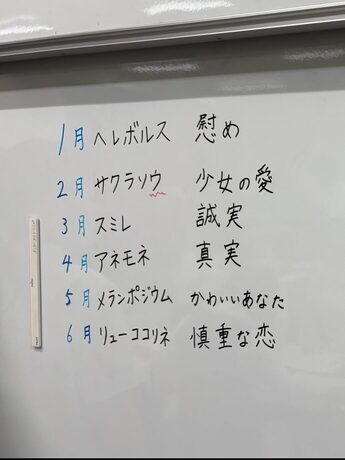 1月 ヘレボルス 慰め
2月 サクラソウ 少女の愛
3月 スミレ 誠実
4月 アネモネ 真実
5月 メランポジウム かわいいあなた
6月 リューココリネ 慎重な恋